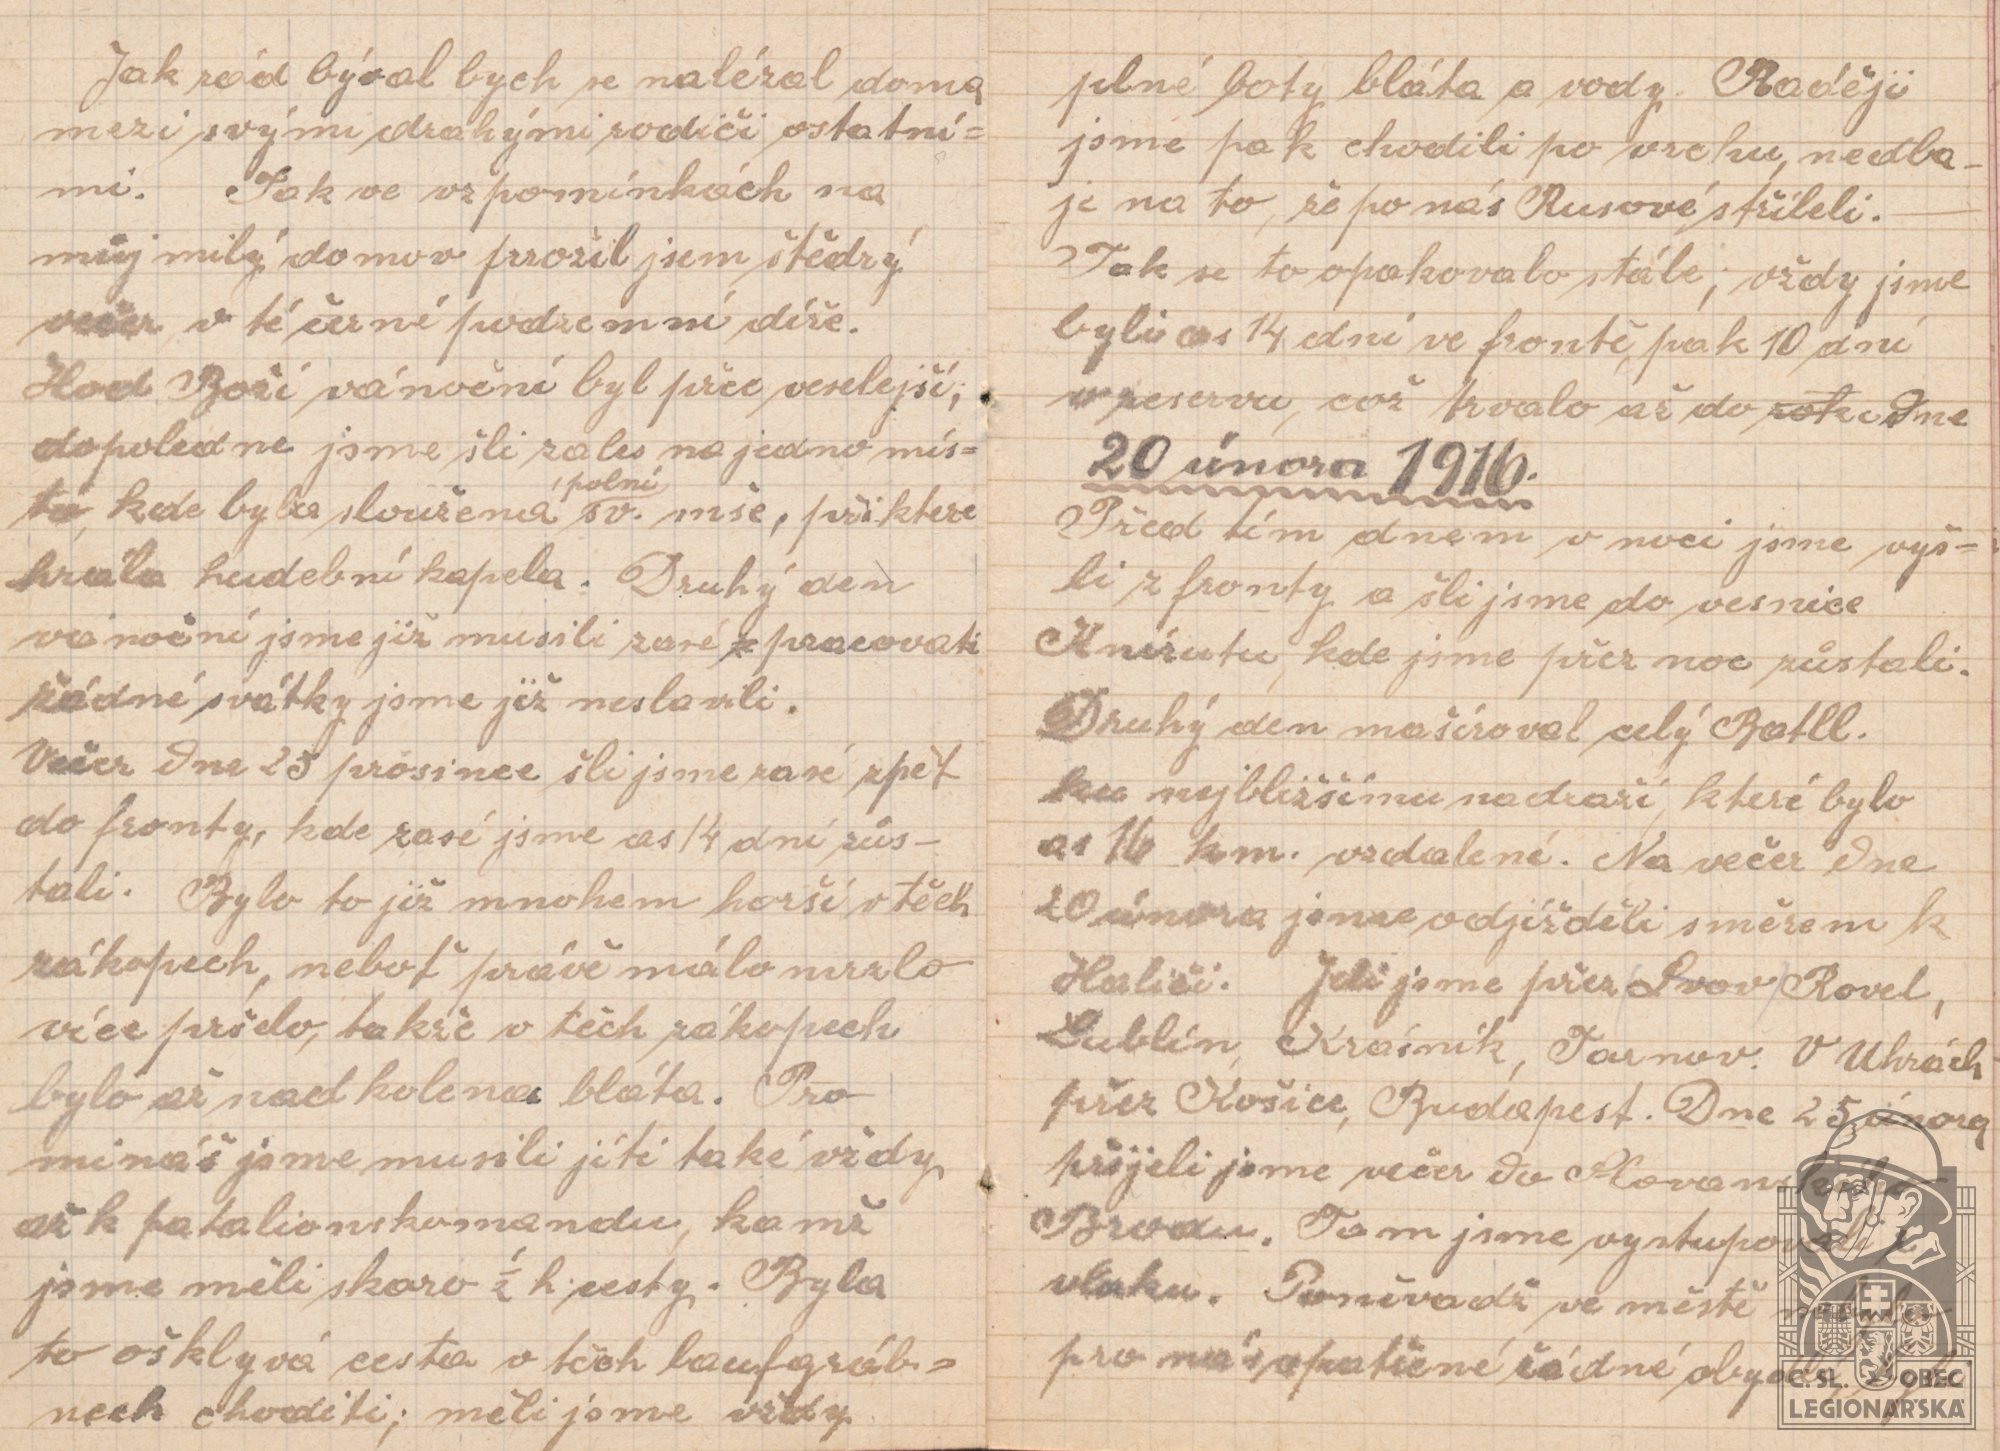 Jak rád býval bych se nalézal doma
mezi svými drahými rodiči ostatní=
mi. Tak ve vzpomínkách na
můj milý domov prožil jsem štědrý
večer v té černé podzemní díře.
Hod Boží vánoční byl přec veselejší;
dopoledne jsme šli zales na jedno mís=
to, kde byla sloužena polní sv. mše, při ktere
hrála hudební kapela. Druhý den
vánoční jsme již musili zasé pracovati
žádné svátky jsme již neslavili.
Večer dne 25 prosince šli jsme zasé zpět
do fronty, kde zasé jsme as 14 dní zůs-
tali. Bylo to již mnohem horší v těch
zákopech, neboť právě málo mrzlo
více pršelo, takže v těch zákopech
bylo až nad kolena bláta. Pro
mináš jsme musili jíti také vždy
až k patalionskomandu, kamž
jsme měli skoro ½ h cesty. Byla
to ošklyvá cesta v těch laufgráb=
nech choditi; měli jsme vždy
plné boty bláta a vody. Raději
jsme pak chodili po vrchu, nedba-
je na to, že po nás Rusové stříleli.
Tak se to opakovalo stále; vždy jsme
byli as 14 dní ve frontě, pak 10 dní
v reservu, což trvalo až do roku dne
20 února 1916.
Před tím dnem v noci jsme vyš=
li z fronty a šli jsme do vesnice
Knírutu, kde jsme přez noc zůstali.
Druhý den mašíroval celý Batll.
ku nejbližšímu nadraží, které bylo
as 16 km. vzdalené. Na večer dne
20 února jsme odjížděli směrem k
Haliči. Jeli jsme přez (Lvov) Rovel,
Lublín, Krásník, Tarnov. V Uhrách
přez Košice, Budapest. Dne 25 února
přijeli jsme večer do Slovanského
Brodu. Tam jsme vystupovali z
vlaku. Poněvadž ve městě nebylo
pro nás opatřené žádné obydlí, byli
Č. SL. OBEC
LEGIONÁŘSKÁ